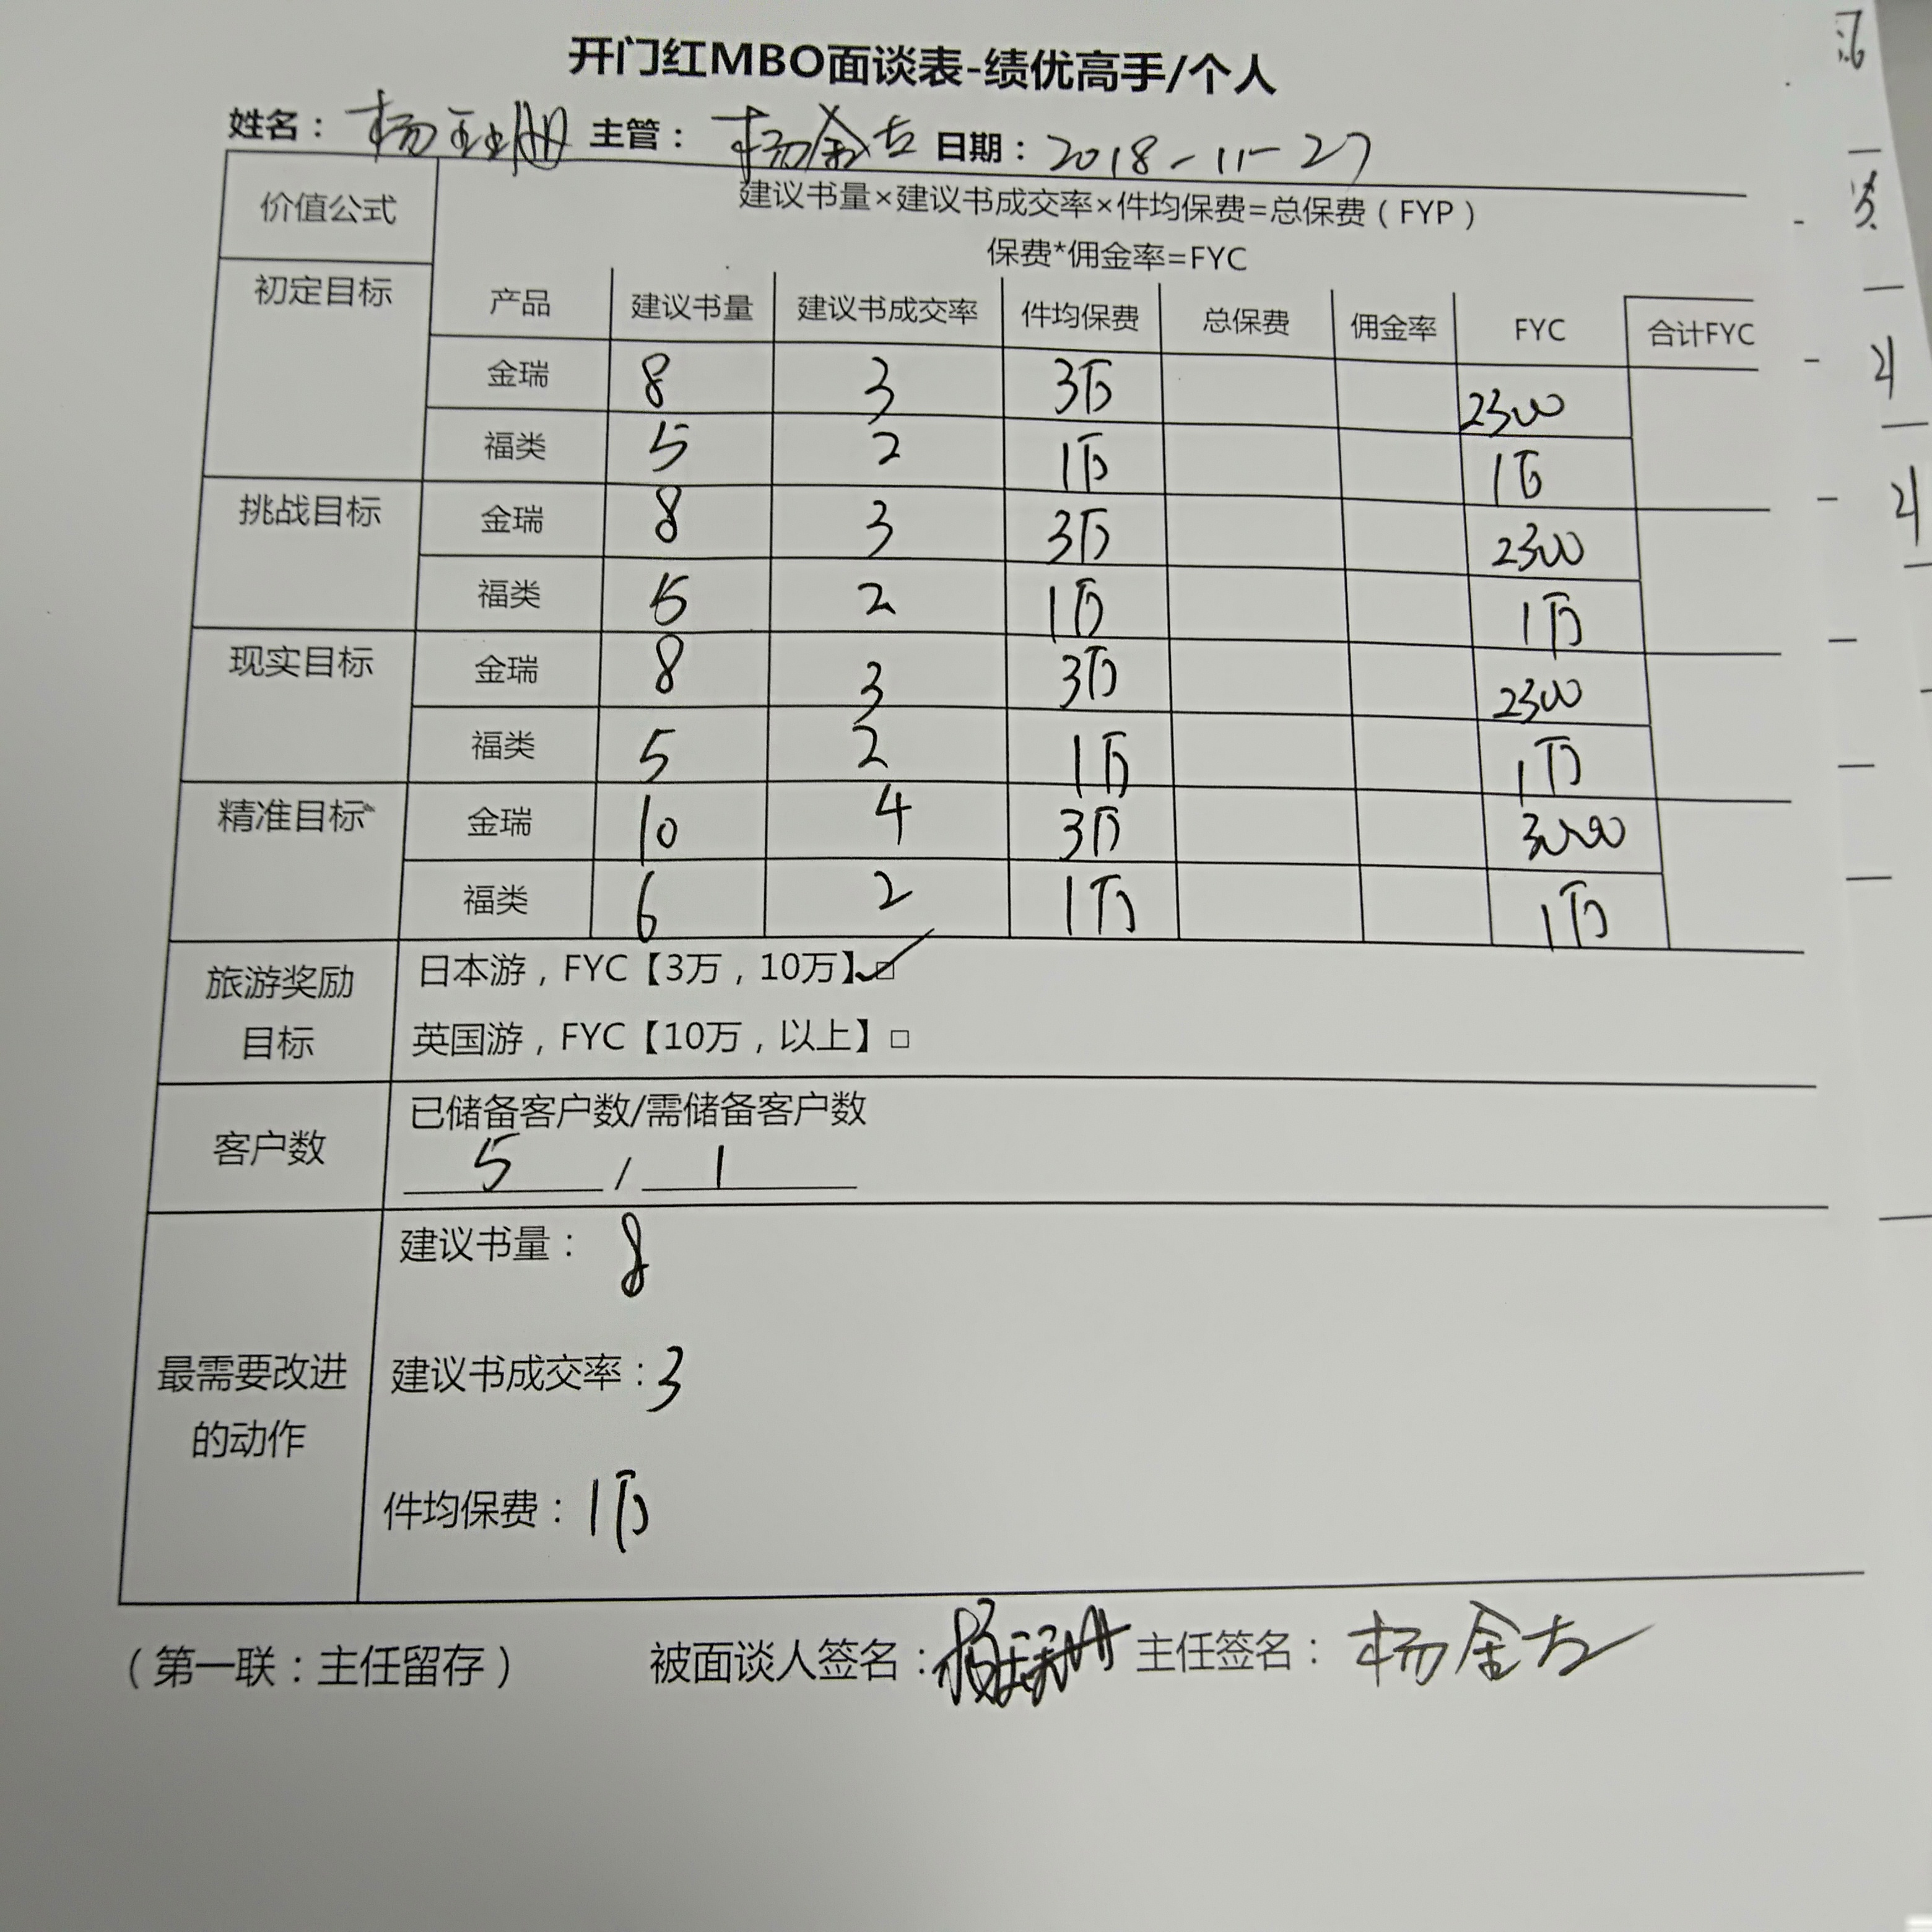 开门红MBO面谈表-绩优高手/个人
姓名： 杨 主管： 杨金左 日期：2018-11-27
价值公式 建议书量×建议书成交率×件均保费=总保费（FYP）
保费*佣金率=FYC
初定目标 产品 建议书量 建议书成交率 件均保费 总保费 佣金率 FYC 合计FYC
金瑞 8 3 3万 2300
福类 5 2 1万 1万
挑战目标 金瑞 8 3 3万 2300
福类 5 2 1万 1万
现实目标 金瑞 8 3 3万 2300
福类 5 2 1万 1万
精准目标 金瑞 10 4 3万
福类 6 2 1万 1万
旅游奖励目标 日本游，FYC【3万，10万】☑
英国游，FYC【10万，以上】□
客户数 已储备客户数/需储备客户数
5 / 1
最需要改进的动作 建议书量： 8
建议书成交率：3
件均保费：1万
（第一联：主任留存） 被面谈人签名：杨 主任签名：杨金左